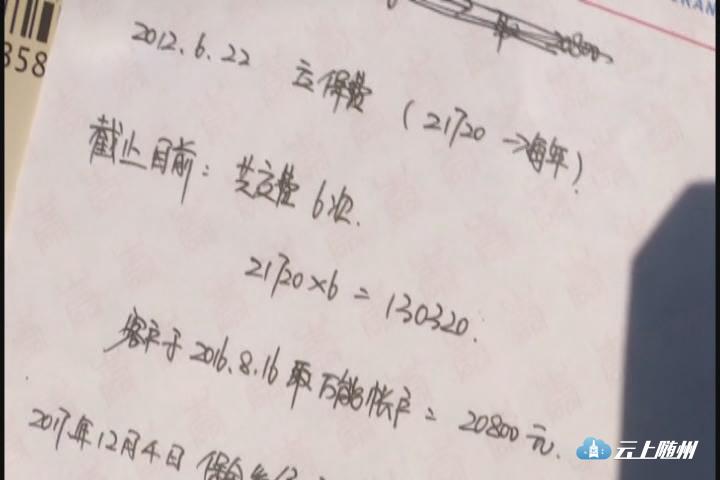 20800
2012.6.22 交保费 (21720→每年)
截止目前：共交费6次.
21720×6=130320.
客户于2016.8.16取万能帐户=20800元.
2017年12月4日 保
358
云上随州